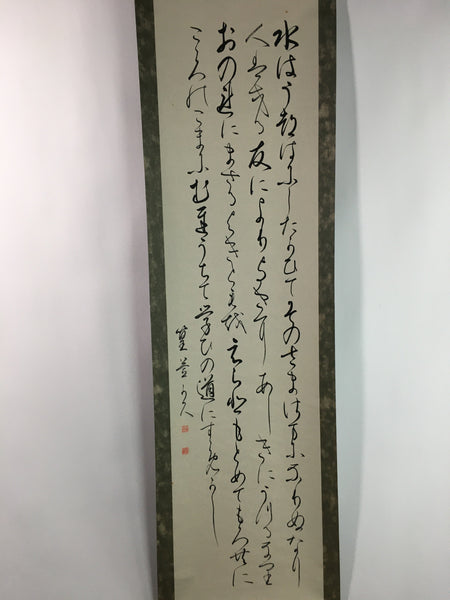 水はうつはにしたかひてそのさま／＼になりぬなり
人はましはる友によりよきにあしきにうつるなり
おのれにまさるよきともをえらひもとめてもろともに
こゝろのこまにむちうちて学ひの道にすゝめかし